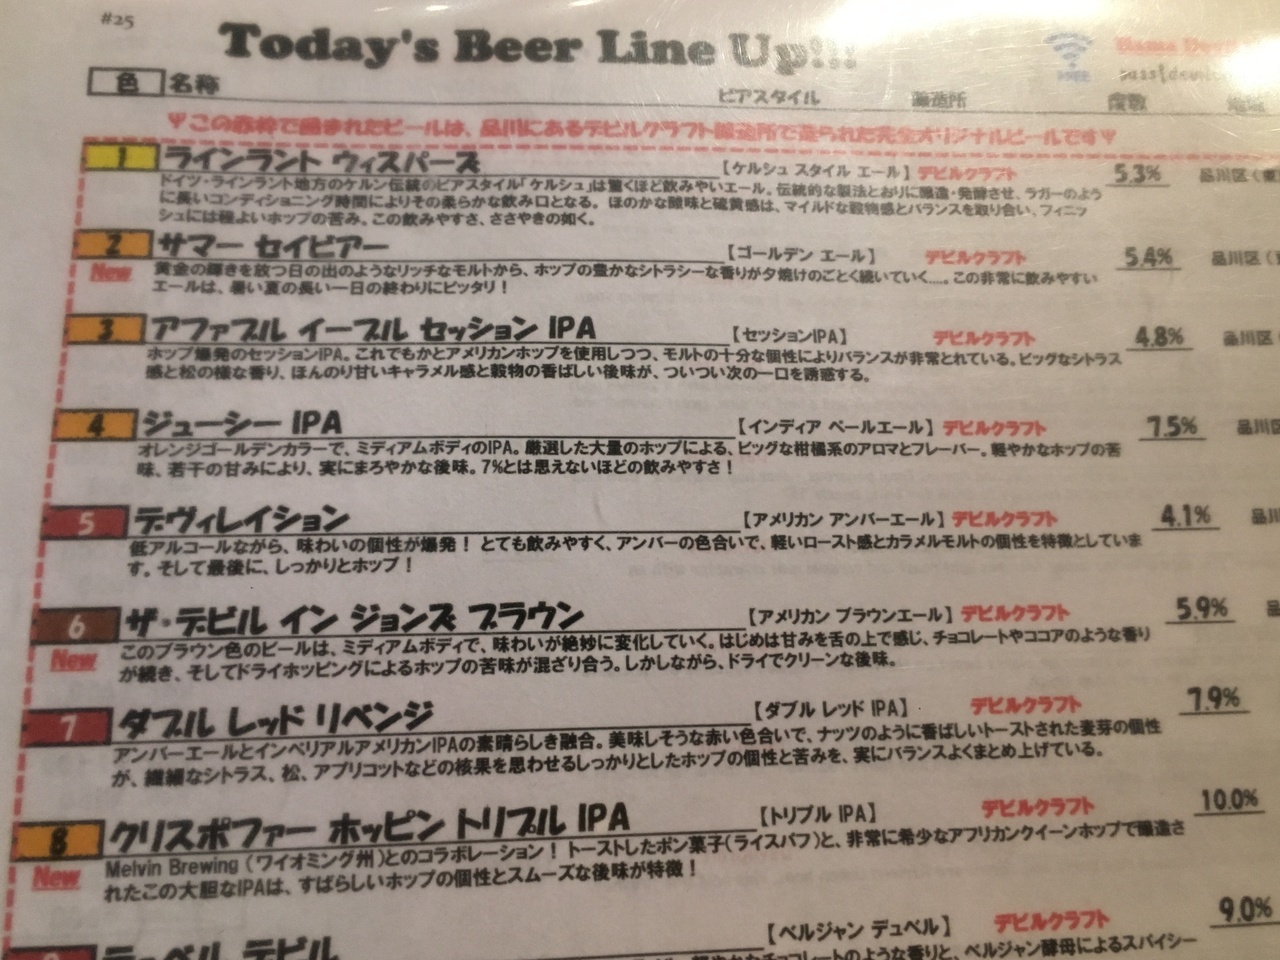 #25
Today's Beer Line Up!!!
FREE
色 名称 ビアスタイル 醸造所 度数
Ψこの赤枠で囲まれたビールは、品川にあるデビルクラフト醸造所で造られた完全オリジナルビールですΨ
1 ラインラント ウィスパーズ 【ケルシュ スタイル エール】 デビルクラフト 5.3% 品川区
ドイツ・ラインラント地方のケルン伝統のビアスタイル「ケルシュ」は驚くほど飲みやいエール。伝統的な製法とおりに醸造・発酵させ、ラガーのよう
に長いコンディショニング時間によりその柔らかな飲み口となる。 ほのかな酸味と硫黄感は、マイルドな穀物感とバランスを取り合い、フィニッ
シュには程よいホップの苦み。この飲みやすさ、ささやきの如く。
2 サマー セイビアー 【ゴールデン エール】 デビルクラフト 5.4% 品川区
New 黄金の輝きを放つ日の出のようなリッチなモルトから、ホップの豊かなシトラシーな香りが夕焼けのごとく続いていく.....。この非常に飲みやすい
エールは、暑い夏の長い一日の終わりにピッタリ！
3 アファブル イーブル セッション IPA 【セッションIPA】 デビルクラフト 4.8% 品川区
ホップ爆発のセッションIPA。これでもかとアメリカンホップを使用しつつ、モルトの十分な個性によりバランスが非常とれている。ビッグなシトラス
感と松の様な香り、ほんのり甘いキャラメル感と穀物の香ばしい後味が、ついつい次の一口を誘惑する。
4 ジューシー IPA 【インディア ペールエール】 デビルクラフト 7.5% 品川
オレンジゴールデンカラーで、ミディアムボディのIPA。厳選した大量のホップによる、ビッグな柑橘系のアロマとフレーバー。軽やかなホップの苦
味、若干の甘みにより、実にまろやかな後味。7%とは思えないほどの飲みやすさ！
5 デヴィレイション 【アメリカン アンバーエール】 デビルクラフト 4.1% 品川
低アルコールながら、味わいの個性が爆発！ とても飲みやすく、アンバーの色合いで、軽いロースト感とカラメルモルトの個性を特徴としていま
す。そして最後に、しっかりとホップ！
6 ザ・デビル イン ジョンズ ブラウン 【アメリカン ブラウンエール】 デビルクラフト 5.9% 品
New このブラウン色のビールは、ミディアムボディで、味わいが絶妙に変化していく。はじめは甘みを舌の上で感じ、チョコレートやココアのような香り
が続き、そしてドライホッピングによるホップの苦味が混ざり合う。しかしながら、ドライでクリーンな後味。
7 ダブル レッド リベンジ 【ダブル レッド IPA】 デビルクラフト 7.9%
アンバーエールとインペリアルアメリカンIPAの素晴らしき融合。美味しそうな赤い色合いで、ナッツのように香ばしいトーストされた麦芽の個性
が、繊細なシトラス、松、アプリコットなどの核果を思わせるしっかりとしたホップの個性と苦みを、実にバランスよくまとめ上げている。
8 クリスポファー ホッピン トリプル IPA 【トリプル IPA】 デビルクラフト 10.0%
New Melvin Brewing（ワイオミング州）とのコラボレーション！ トーストしたポン菓子（ライスパフ）と、非常に希少なアフリカンクイーンホップで醸造さ
れたこの大胆なIPAは、すばらしいホップの個性とスムーズな後味が特徴！
デュベル デビル 【ベルジャン デュベル】 デビルクラフト 9.0%
チョコレートのような香りと、ベルジャン酵母によるスパイシー